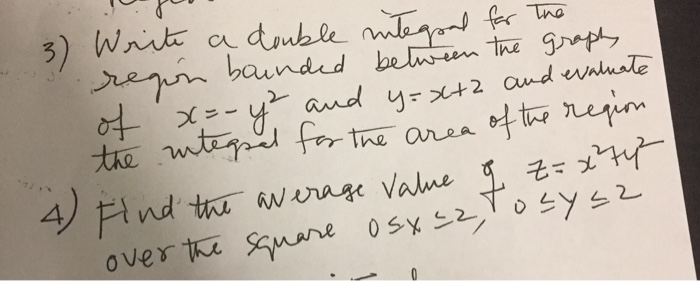 3) Write a double integral for the
region bounded between the graphs
of x = -y² and y = x+2 and evaluate
the integral for the area of the region
4) Find the average value of z = x²+y²
over the square 0≤x≤2, 0≤y≤2